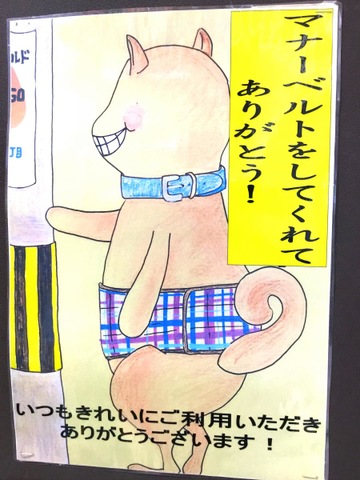 マナーベルトをしてくれて
ありがとう！
ルド
GO
JB
いつもきれいにご利用いただき
ありがとうございます！